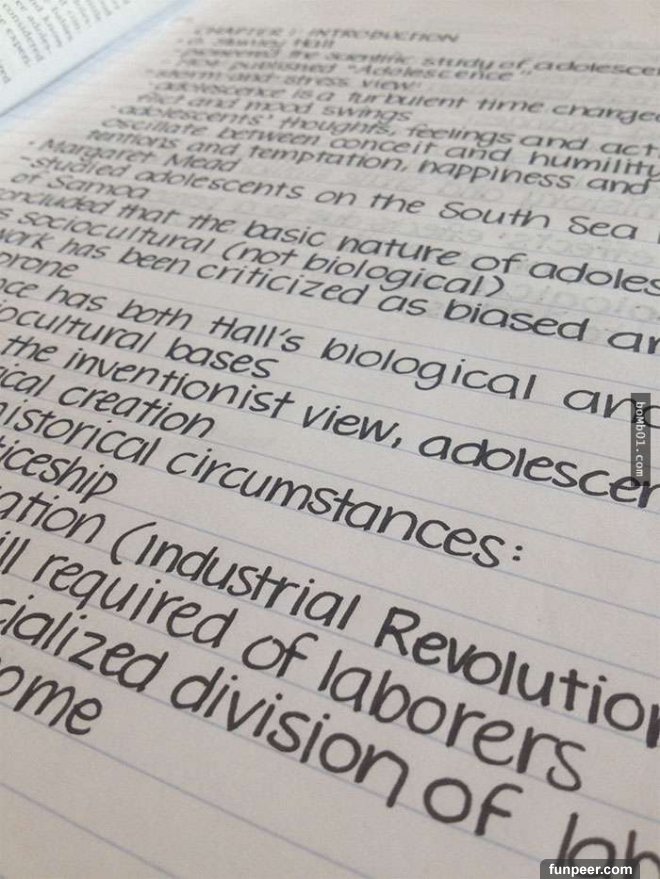 CHAPTER 1: INTRODUCTION
G. Stanley Hall
pioneered the scientific study of adolescen
published "Adolescence"
storm-and-stress view:
adolescence is a turbulent time charged
and mood swings
adolescents' thoughts, feelings and act
oscillate between conceit and humility
and temptation, happiness and
- Margaret Mead
-studied adolescents on the South Sea
of Samoa
concluded that the basic nature of adoles
sociocultural (not biological)
work has been criticized as biased an
prone
nce has both Hall's biological and
iocultural bases
the inventionist view, adolescen
ical creation
historical circumstances:
ticeship
ation (Industrial Revolution
ill required of laborers
cialized division of lab
ome
boMb01.com
funpeer.com